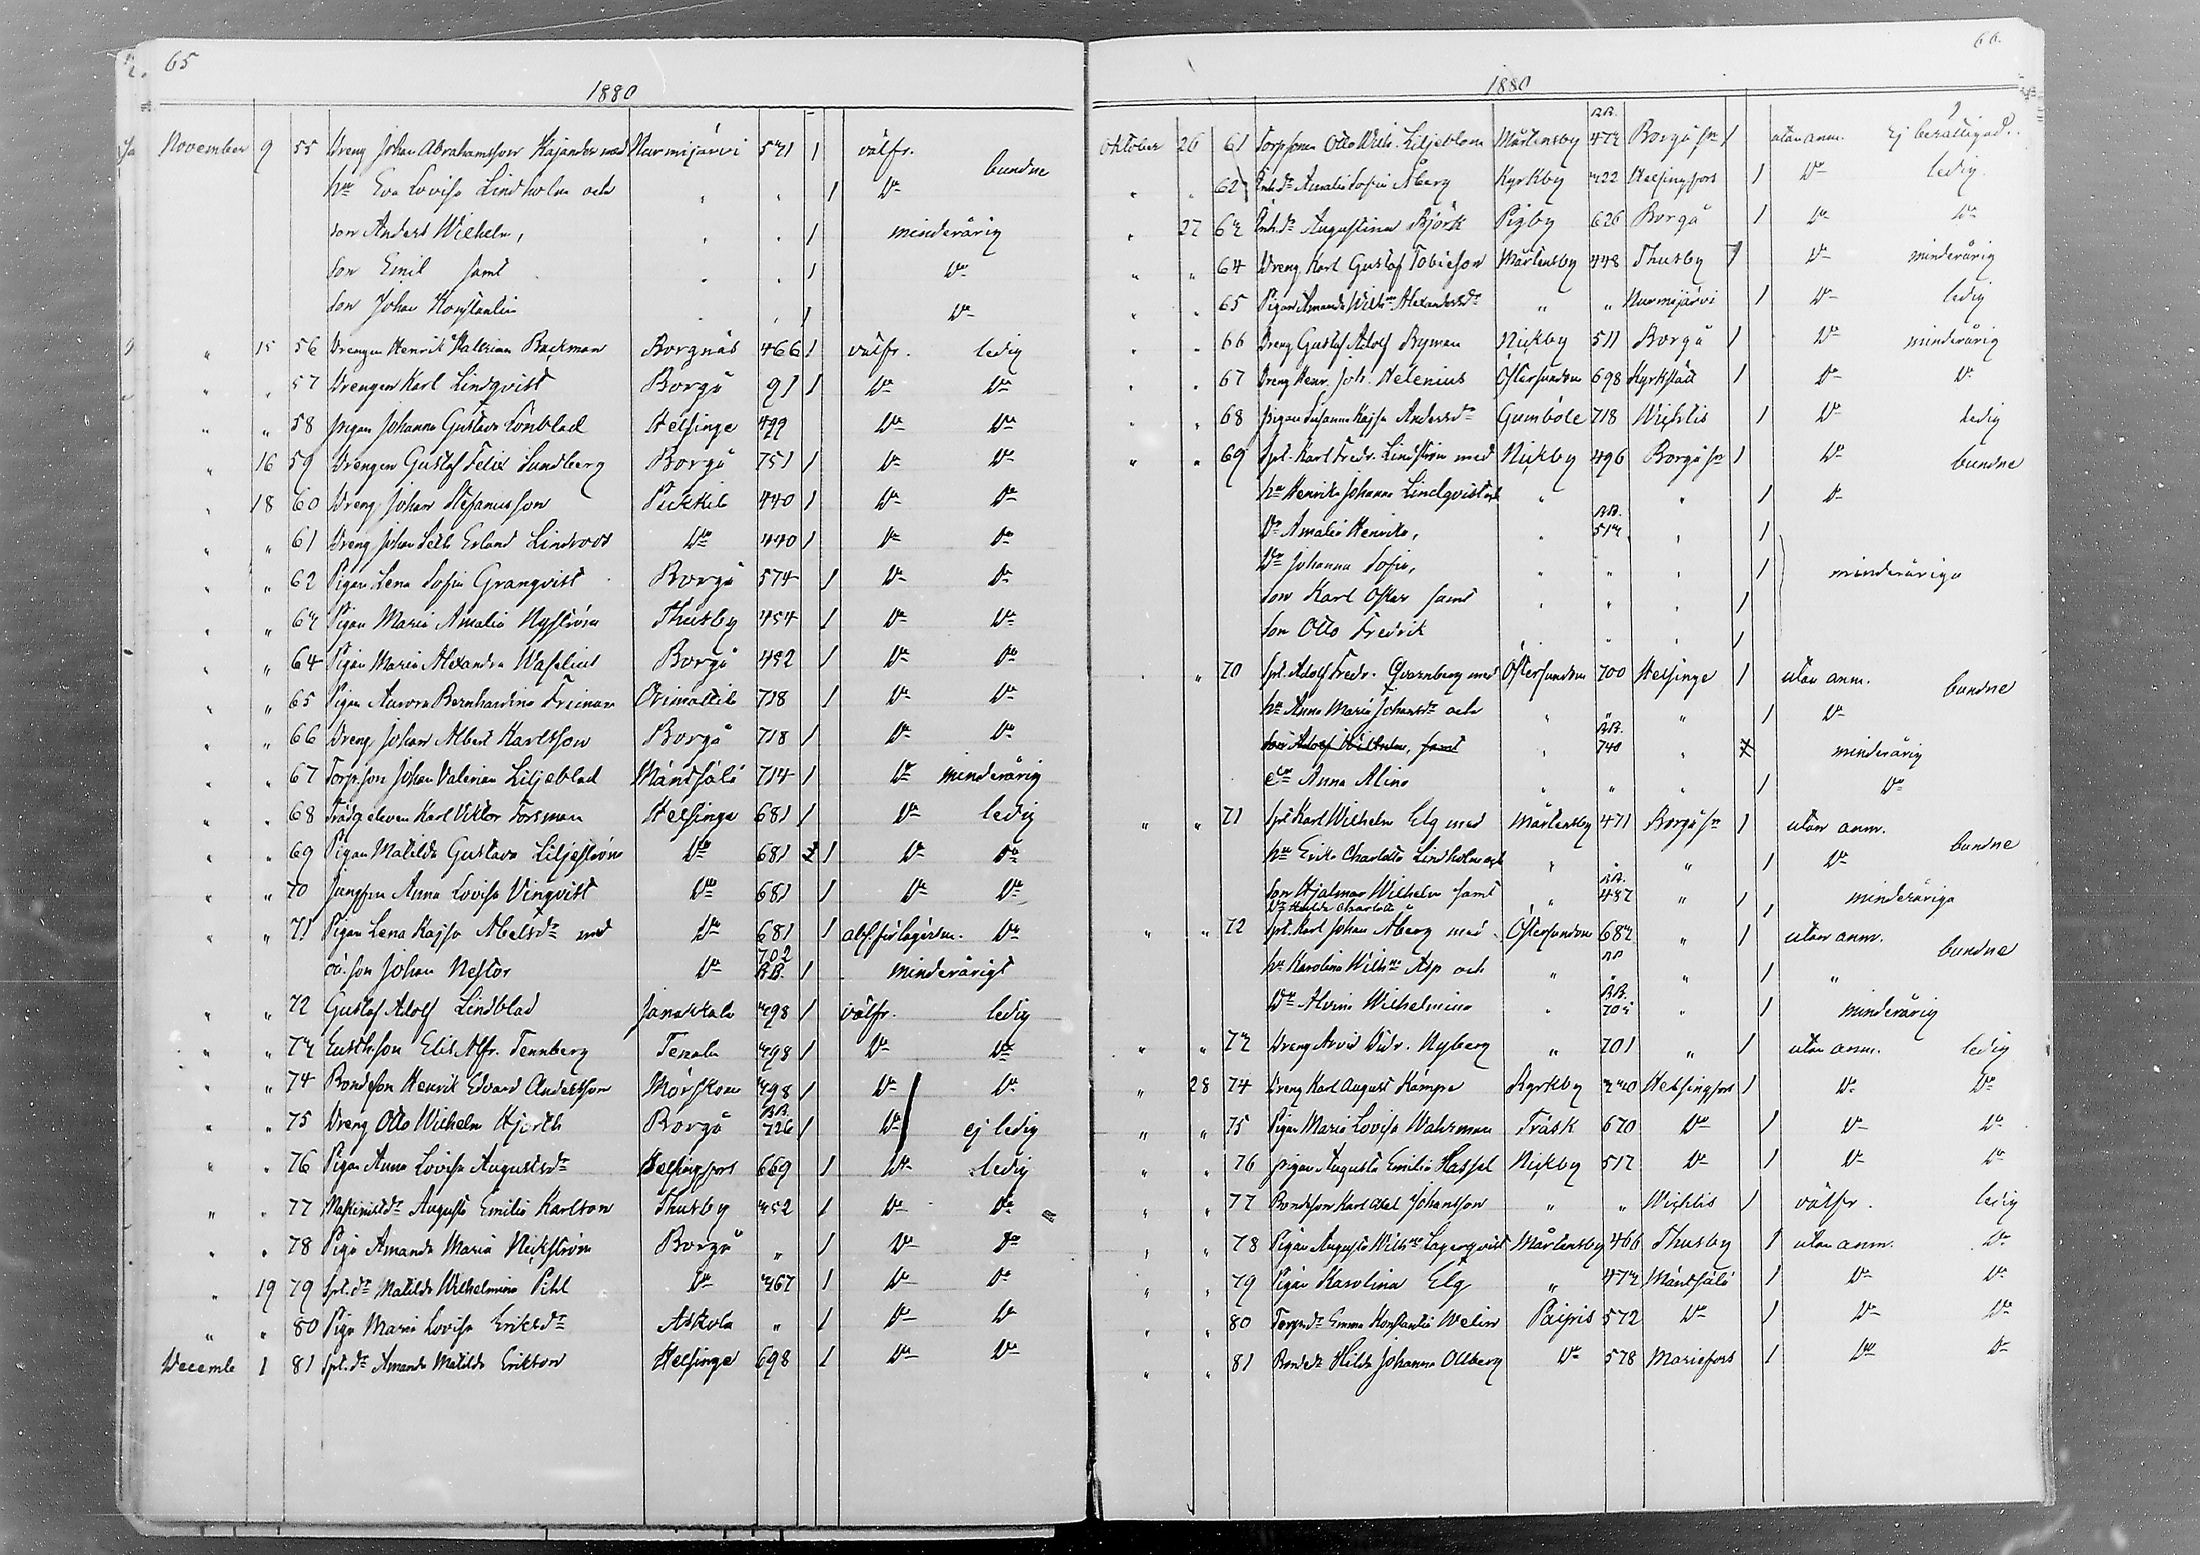 65
1880
November 9 55 Dreng Johan Abrahamsson Kajander med Nurmijärvi 531 1 välfr. bundne
hu Eva Lovisa Lindholm och " " 1 Do
son Anders Wilhelm, " " 1 minderårig
son Emil samt " " 1 Do
son Johan Konstantin " " 1 Do
" 15 56 Drengen Henrik Valerian Backman Borgnäs 466 1 välfr. ledig
" " 57 Drengen Karl Lindqvist Borgå 91 1 Do Do
" " 58 pigan Johanna Gustava Lönblad Helsinge 499 Do Do
" 16 59 Drengen Gustaf Felix Sundberg Borgå 751 1 Do Do
" 18 60 Dreng Johan Stefanusson Pukkila 440 1 Do Do
" " 61 Dreng Johan Seth Erland Lindroos Do 440 1 Do Do
" " 62 Pigan Lena Sofia Granqvist Borgå 574 1 Do Do
" " 63 Pigan Maria Amalia Nyström Thusby 454 1 Do Do
" " 64 Pigan Maria Alexandra Waselius Borgå 492 1 Do Do
" " 65 Pigan Aurora Bernhardina Friman Orimattila 718 1 Do Do
" " 66 Dreng Johan Albert Karlsson Borgå 718 1 Do Do
" " 67 Torpson Johan Valerian Liljeblad Mäntsälä 714 1 Do minderårig
" " 68 Trädg eleven Karl Viktor Forsman Helsinge 681 1 Do ledig
" " 69 Pigan Matilda Gustava Liljeström Do 681 1 Do Do
" " 70 Jungfru Anna Lovisa Vinqvist Do 681 1 Do Do
" " 71 Pigan Lena Kajsa Abelsdr med Do 681 1 abs. för lägersm. Do
oä. son Johan Nestor Do 702 BB. 1 minderårigt
" " 72 Gustaf Adolf Lindblad Janakkala 398 1 välfr. ledig
" " 73 Elis Alfr. Tennberg Tenala 398 1 Do Do
" " 74 Bondeson Henrik Edvard Andersson Mörskom 398 1 Do Do
" " 75 Dreng Otto Wilhelm Hjorth Borgå BB. 726 1 Do ej ledig
" " 76 Pigan Anna Lovisa Augustsdr Helsingfors 669 1 Do ledig
" " 77 Augusta Emilia Karlson Thusby 352 1 Do Do
" " 78 Piga Amanda Maria Nickström Borgå " 1 Do Do
" 19 79 Spl. dr Matilda Wilhelmina Pihl Do 367 1 Do Do
" " 80 Piga Maria Lovisa Eriksdr Askola " 1 Do Do
Decemb 1 81 Spl. dr Amanda Matilda Erikson Helsinge 698 1 Do Do
66.
1880
Oktober 26 61 Torpsonen Otto Wilh. Liljeblom Mårtensby BB. 473 Borgå sn 1 utan anm. Ej berättigad.
" " 62 Amalia Sofia Åberg Kyrkby 322 Helsingfors 1 Do ledig
" 27 63 Augustina Björk Pigby 626 Borgå 1 Do Do
" " 64 Dreng Karl Gustaf Tobieson Mårtensby 448 Thusby 1 Do minderårig
" " 65 Pigan Amanda Wilhna Alexandersdr " " Nurmijärvi 1 Do ledig
" " 66 Dreng Gustaf Adolf Byman Nickby 511 Borgå 1 Do minderårig
" " 67 Dreng Henr. Joh. Helenius Östersundom 698 Kyrkslätt 1 Do Do
" " 68 pigan Susanna Kajsa Andersdr Gumböle 718 Wichtis 1 Do ledig
" " 69 Spl. Karl Fredr. Lindström med Nickby 496 Borgå sn 1 Do bundne
hu Henrika Johanna Lindqvist och " " 1 Do
Dr Amalia Henrika, " BB. 513 " 1
Dr Johanna Sofia, " " " 1 minderåriga
son Karl Oskar samt " " " 1
son Otto Fredrik " " " 1
" " 70 Spl. Adolf Fredr. Qvarnberg med Östersundom 700 Helsinge 1 utan anm. bundne
hu Anna Maria Johansdr och " " " 1 Do
son Adolf Wilhelm, samt " BB. 740 " minderårig
Dr Anna Alina " " " 1 Do
" " 71 Spl Karl Wilhelm Elg med Mårtensby 471 Borgå sn 1 utan anm. bundne
hu Erika Charlotta Lindholm och " " " 1 Do
son Hjalmar Wilhelm samt " BB. 487 " 1 minderåriga
Dr Hulda Charlotta 1
" " 72 Spl. Karl Johan Åberg med Östersundom 683 " 1 utan anm. bundne
hu Karolina Wilhna Asp och " " " 1 "
Dr Alvina Wilhelmina " BB. " 1 minderårig
" " 73 Dreng Arvid Didr. Nyberg " 701 " 1 utan anm. ledig
" 28 74 Dreng Karl August Kämpe Kyrkby 340 Helsingfors 1 Do Do
" " 75 Pigan Maria Lovisa Wahrman Träsk 670 Do 1 Do Do
" " 76 pigan Augusta Emilia Hassel Nickby 517 Do 1 Do Do
" " 77 Bondeson Karl Axel Johansson " " Wichtis 1 välfr. ledig
" " 78 Pigan Augusta Wilhna Lagerqvist Mårtensby 466 Thusby 1 utan anm. Do
" " 79 Pigan Karolina Elg " 473 Mäntsälä 1 Do Do
" " 80 Torpdr Emma Konstantia Welin Paipis 572 Do 1 Do Do
" " 81 Bondedr Hilda Johanna Ollberg Do 578 Mariefors 1 Do Do